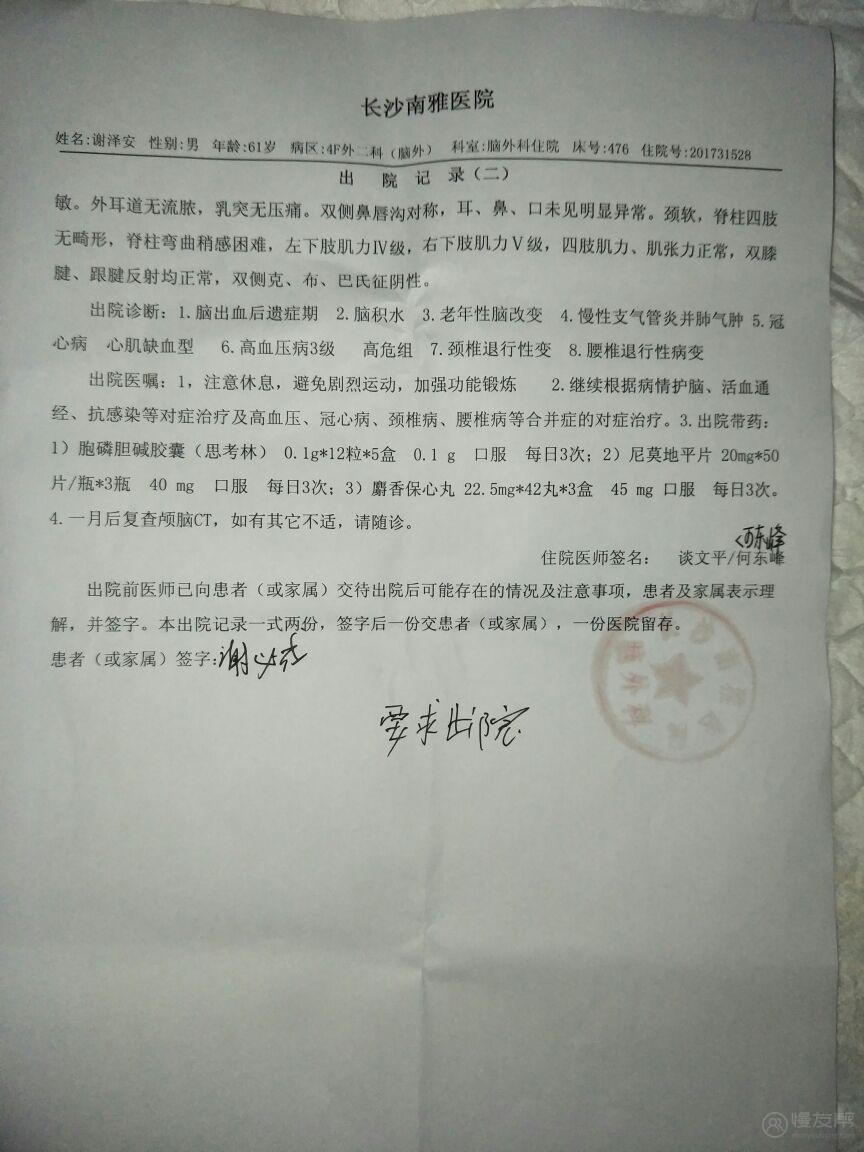 长沙南雅医院
姓名:谢泽安 性别:男 年龄:61岁 病区:4F外二科（脑外） 科室:脑外科住院 床号:476 住院号:201731528
出 院 记 录（二）
敏。外耳道无流脓，乳突无压痛。双侧鼻唇沟对称，耳、鼻、口未见明显异常。颈软，脊柱四肢
无畸形，脊柱弯曲稍感困难，左下肢肌力Ⅳ级，右下肢肌力Ⅴ级，四肢肌力、肌张力正常，双膝
腱、跟腱反射均正常，双侧克、布、巴氏征阴性。
出院诊断：1.脑出血后遗症期 2.脑积水 3.老年性脑改变 4.慢性支气管炎并肺气肿 5.冠
心病 心肌缺血型 6.高血压病3级 高危组 7.颈椎退行性变 8.腰椎退行性病变
出院医嘱：1，注意休息，避免剧烈运动，加强功能锻炼 2.继续根据病情护脑、活血通
经、抗感染等对症治疗及高血压、冠心病、颈椎病、腰椎病等合并症的对症治疗。3.出院带药：
1）胞磷胆碱胶囊（思考林） 0.1g*12粒*5盒 0.1 g 口服 每日3次；2）尼莫地平片 20mg*50
片/瓶*3瓶 40 mg 口服 每日3次；3）麝香保心丸 22.5mg*42丸*3盒 45 mg 口服 每日3次。
4.一月后复查颅脑CT，如有其它不适，请随诊。
何东峰
住院医师签名： 谈文平/何东峰
出院前医师已向患者（或家属）交待出院后可能存在的情况及注意事项，患者及家属表示理
解，并签字。本出院记录一式两份，签字后一份交患者（或家属），一份医院留存。
患者（或家属）签字:谢
要求出院
慢友帮